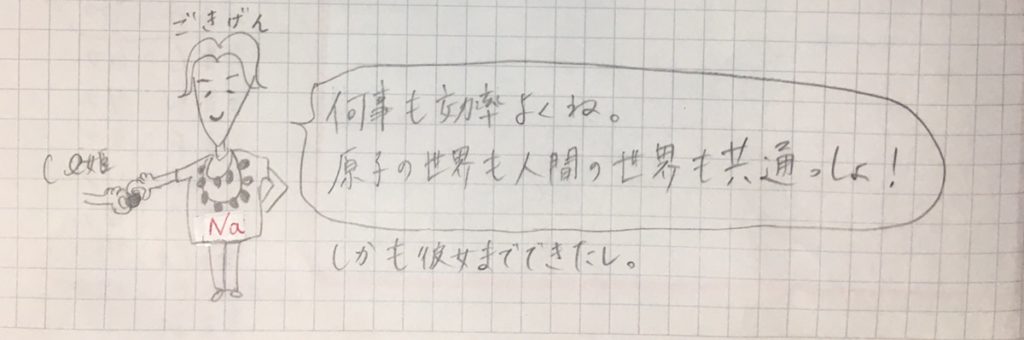 ごきげん
何事も効率よくね。
原子の世界も人間の世界も共通っしょ!
Cl姫
Na
しかも彼女までできたし。